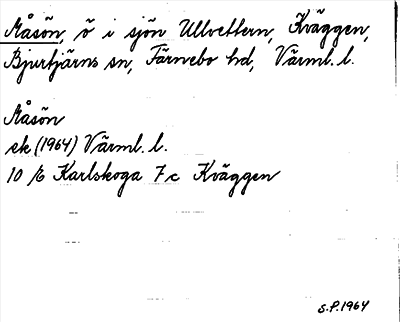 Måsön, ö i sjön Ullvettern, Kväggen,
Bjurtjärns sn, Färnebo hd, Värml. l.
Måsön
ek (1964) Värml. l.
10 /6 Karlskoga 7c Kväggen
S.P. 1964